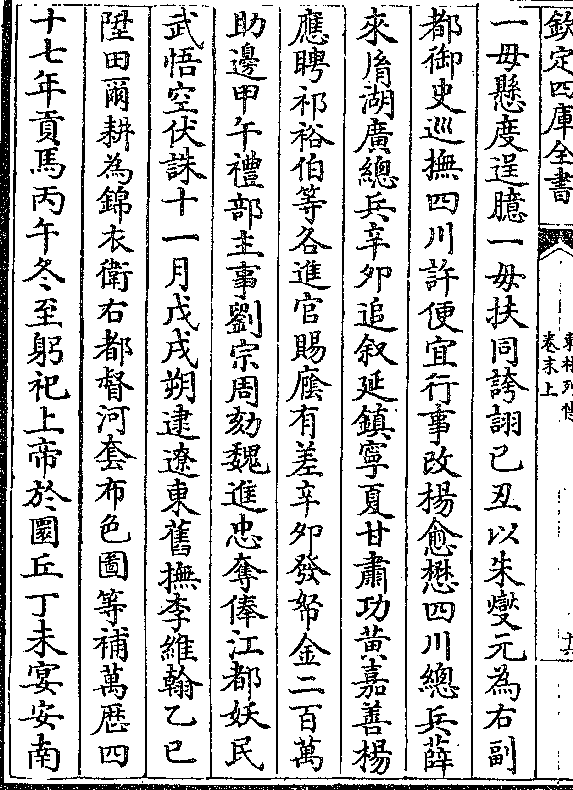 欽定四庫全書
東林列傳
卷末上
一毋懸度逞臆一毋扶同誇詡已丑以朱燮元為右副
都御史巡撫四川許便宜行事改楊愈懋四川總兵薛
來胤湖廣總兵辛夘追叙延鎮寧夏甘肅功黄嘉善楊
應聘祁裕伯等各進官賜廕有差辛夘發帑金二百萬
助邊甲午禮部主事劉宗周劾魏進忠奪俸江都妖民
武悟空伏誅十一月戊戌朔逮遼東舊撫李維翰乙已
陞田爾耕為錦衣衛右都督河套布色圖等補萬厯四
十七年貢馬丙午冬至躬祀上帝於圜丘丁未宴安南